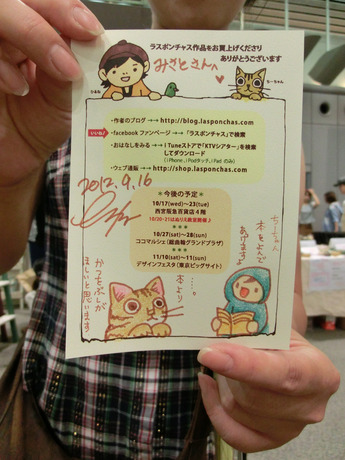 ラスポンチャス作品をお買上げくださり
ありがとうございます
みさとさんへ
ひるね
ちーちゃん
・作者のブログ →→ http://blog.lasponchas.com
いいね!
・facebook ファンページ →→「ラスポンチャス」で検索
・おはなしをみる →→ i Tuneストアで「KTVシアター」を検索
してダウンロード
(iPhone、iPodタッチ、iPad のみ)
・ウェブ通販 →→ http://shop.lasponchas.com
2012.9.16
＊今後の予定＊
10/17(wed)〜23(tue)
西宮阪急百貨店4階
10/20・21はぬりえ教室開催♪
10/27(sat)〜28(sun)
ココマルシェ(嵐曲輪グランドプラザ)
11/10(sat)〜11(sun)
デザインフェスタ(東京ビッグサイト)
ちーちゃん
本をよんで
あげますよ
・・・。
本より
かつをぶしが
ほしいと思います